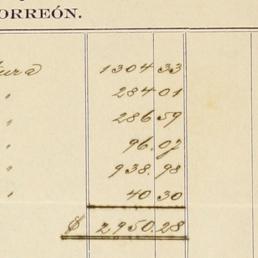 ORREÓN.
tura 1304 33
" 284 01
" 286 59
" 96.07
" 938.98
" 40 30
$ 2950.28